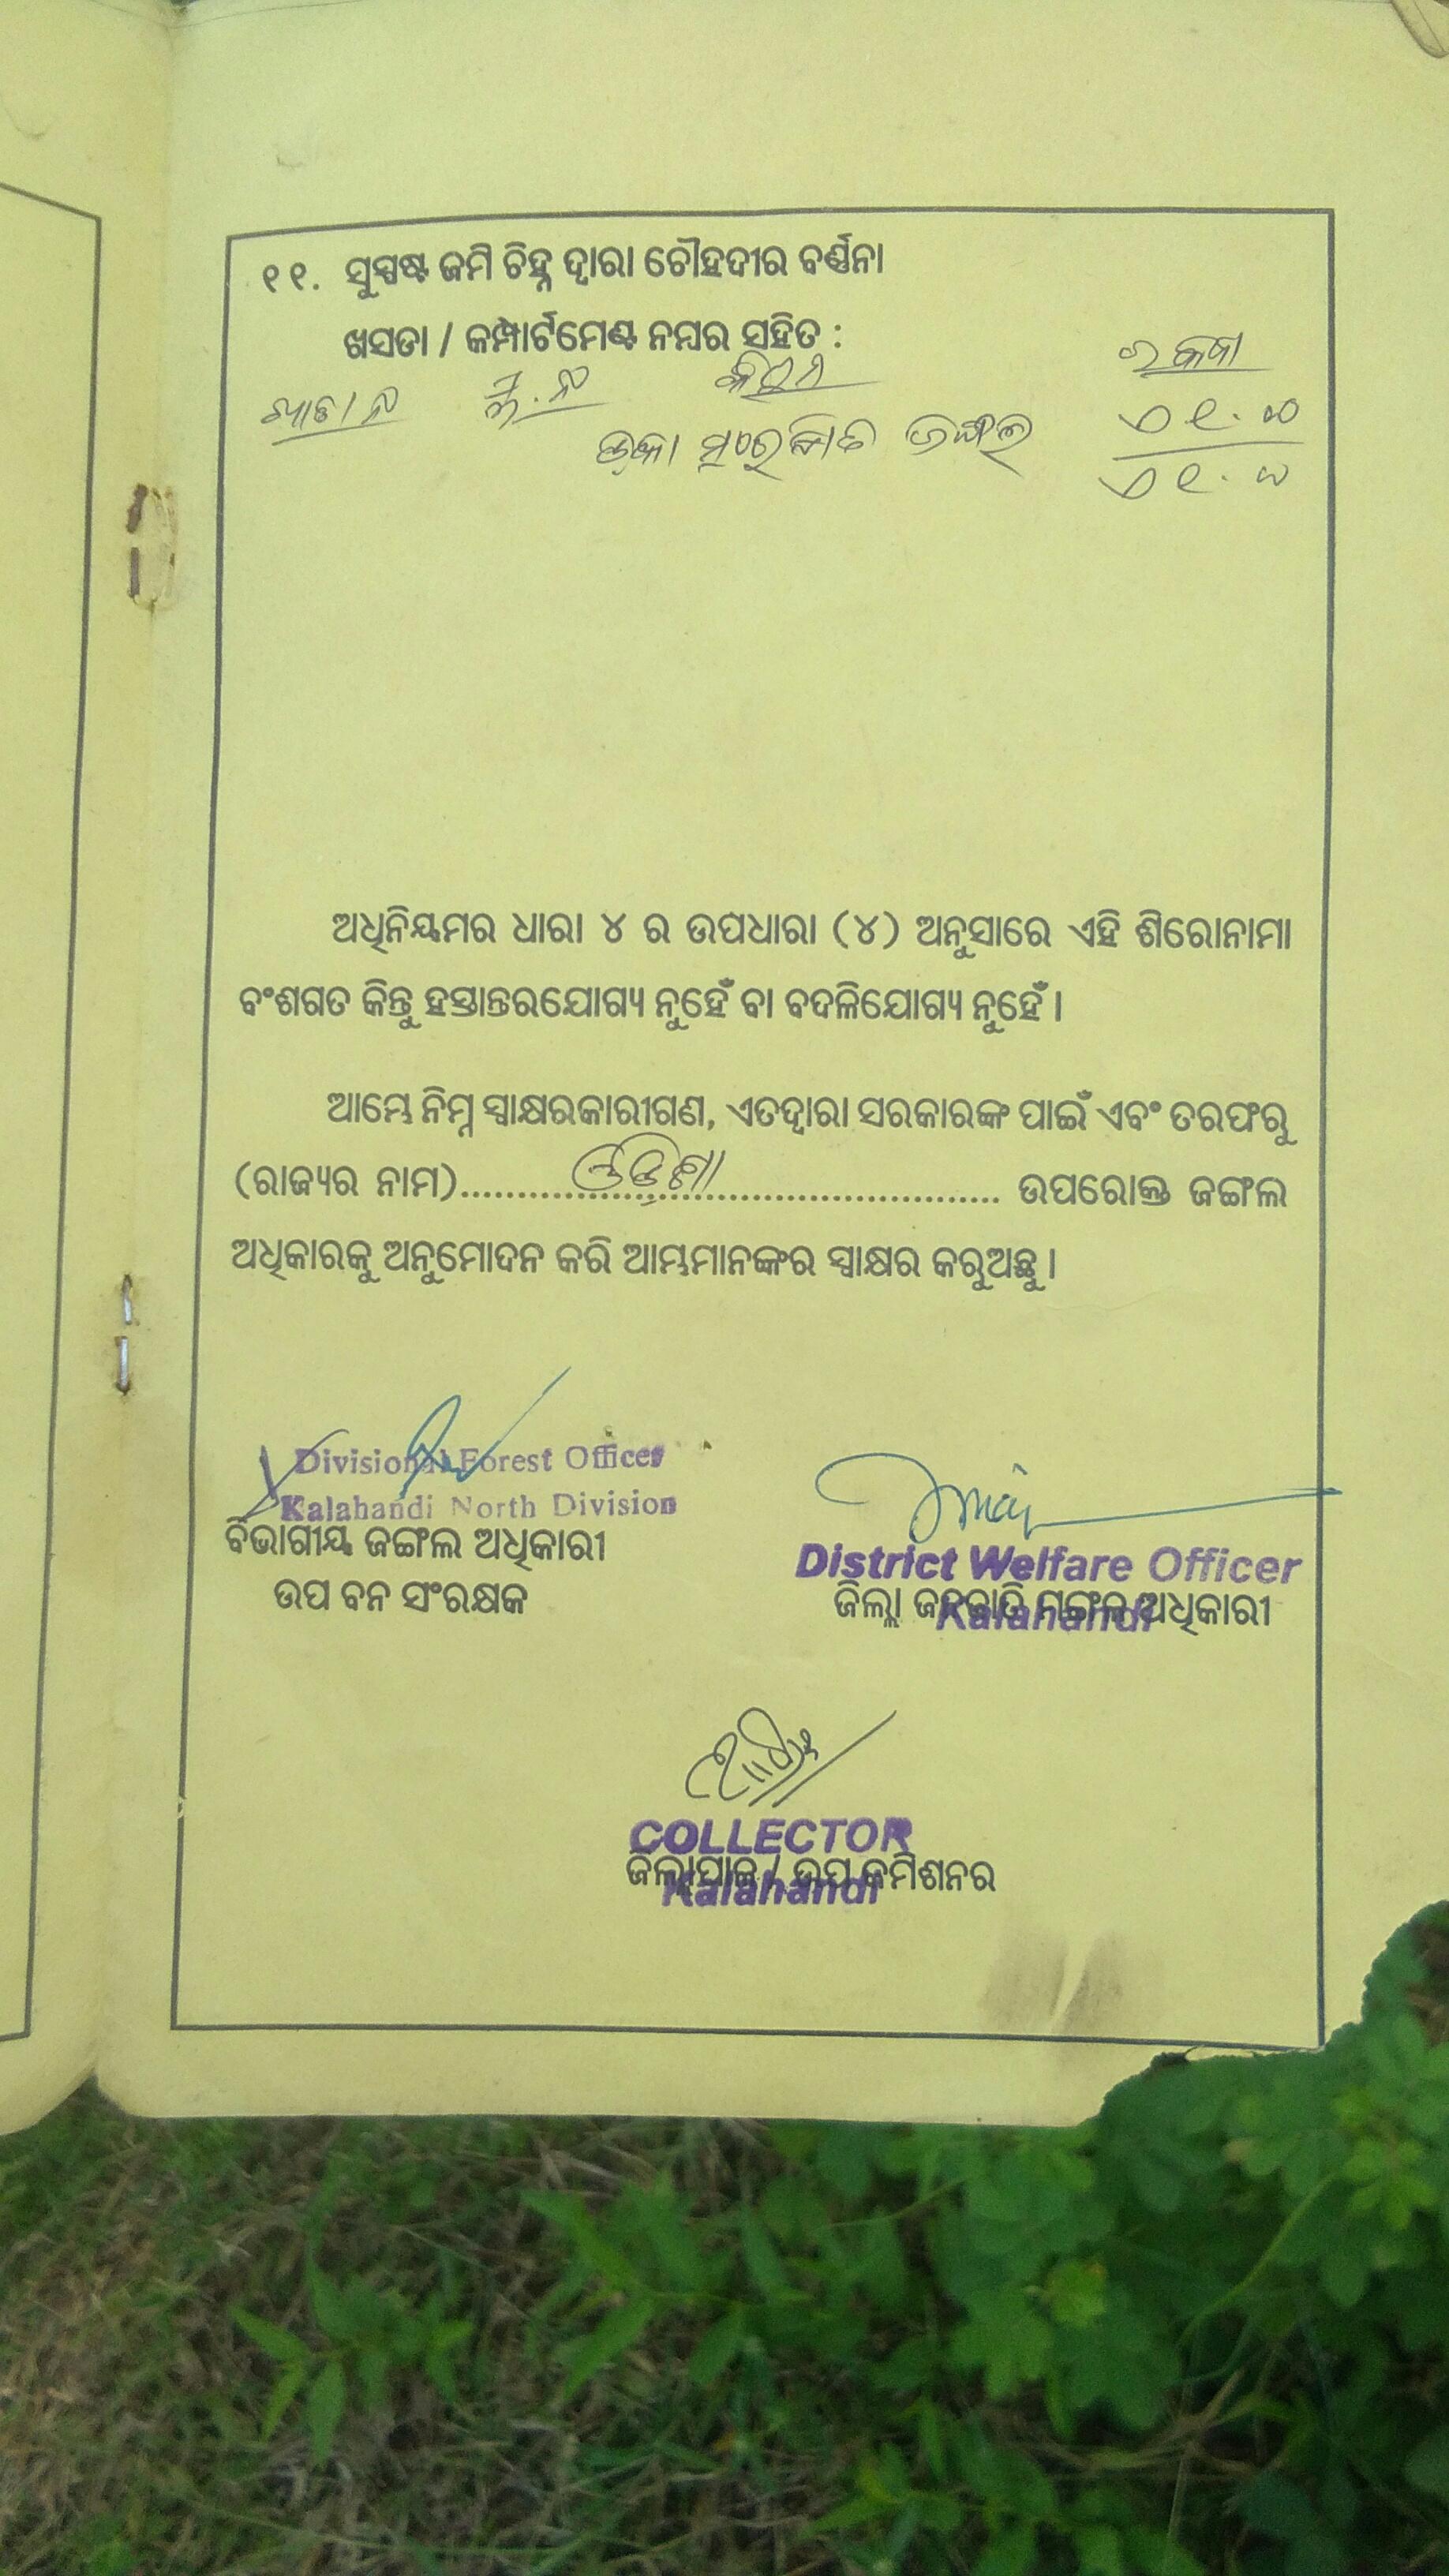 ୧୧. ସୁସ୍ପଷ୍ଟ ଜମି ଚିହ୍ନ ଦ୍ୱାରା ଚୌହଦୀର ବର୍ଣ୍ଣନା
ଖସଡା / କମ୍ପାର୍ଟମେଣ୍ଟ ନମ୍ବର ସହିତ :
ଖାତା ନଂ କିସମ ରକବା
ସଂରକ୍ଷିତ ଜଙ୍ଗଲ
ଅଧିନିୟମର ଧାରା ୪ ର ଉପଧାରା (୪) ଅନୁସାରେ ଏହି ଶିରୋନାମା
ବଂଶଗତ କିନ୍ତୁ ହସ୍ତାନ୍ତରଯୋଗ୍ୟ ନୁହେଁ ବା ବଦଳିଯୋଗ୍ୟ ନୁହେଁ ।
ଆମ୍ଭେ ନିମ୍ନ ସ୍ୱାକ୍ଷରକାରୀଗଣ, ଏତଦ୍ୱାରା ସରକାରଙ୍କ ପାଇଁ ଏବଂ ତରଫରୁ
(ରାଜ୍ୟର ନାମ)........ଓଡ଼ିଶା........ ଉପରୋକ୍ତ ଜଙ୍ଗଲ
ଅଧିକାରକୁ ଅନୁମୋଦନ କରି ଆମ୍ଭମାନଙ୍କର ସ୍ୱାକ୍ଷର କରୁଅଛୁ ।
Divisional Forest Officer
Kalahandi North Division
ବିଭାଗୀୟ ଜଙ୍ଗଲ ଅଧିକାରୀ
ଉପ ବନ ସଂରକ୍ଷକ
District Welfare Officer
Kalahandi
ଜିଲ୍ଲା ଜନଜାତି ମଙ୍ଗଳ ଅଧିକାରୀ
COLLECTOR
Kalahandi
ଜିଲ୍ଲାପାଳ / ଉପ କମିଶନର